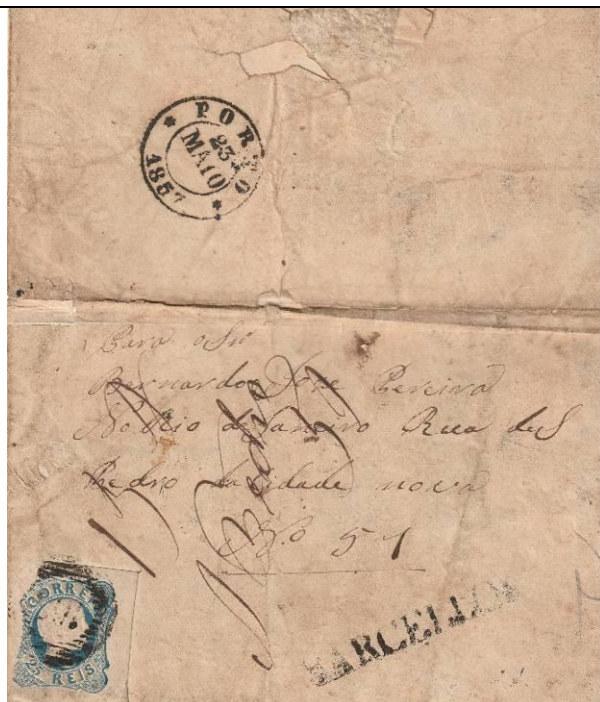 PORTO
23
MAIO
1857
Para o Snr
Bernardo Jose Pereira
No Rio de Janeiro Rua de S
Pedro da cidade nova
No 51
CORREIO
25 REIS